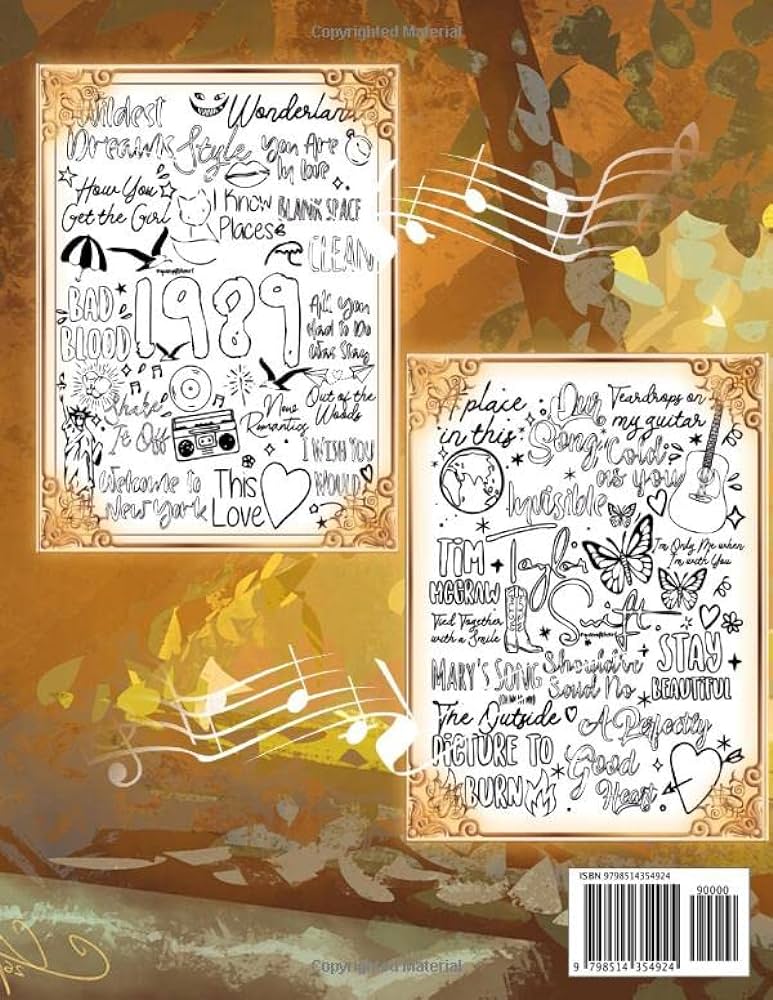 Copyrighted Material
Wildest
Dreams
Wonderland
Style
You Are
In love
How You
Get the Girl
I Know
Places
BLANK SPACE
CLEAN
BAD
BLOOD
1989
All You
Had to Do
Was Stay
Shake
It Off
New
Romantics
Out of the
Woods
I WISH YOU
WOULD
Welcome to
New York
This
Love
A place
in this
Our
Song
Teardrops on
my guitar
Cold
as you
Invisible
TIM
MCGRAW
Taylor
Swift
I'm Only Me when
I'm with You
Tied Together
with a Smile
MARY'S SONG
Should've
Said No
STAY
BEAUTIFUL
The Outside
A Perfectly
Good
Heart
PICTURE TO
BURN
ISBN 9798514354924
90000
9 798514 354924
Copyrighted Material